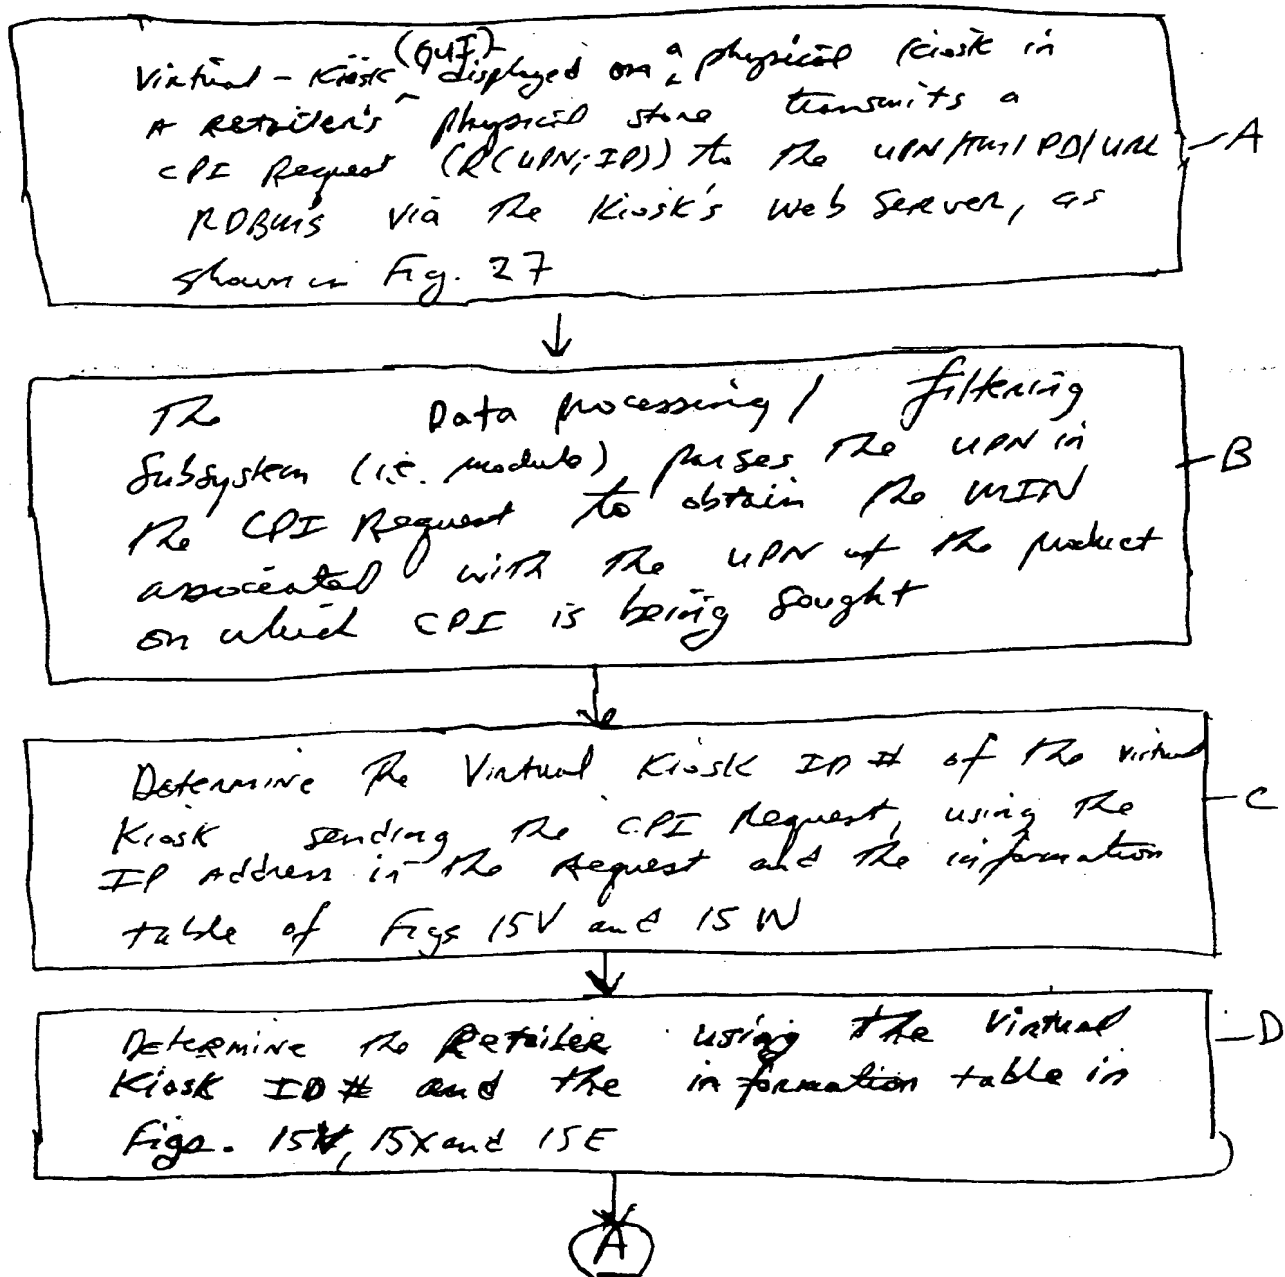 (GUI)
Virtual-Kiosk ^ displayed on ^a physical kiosk in
A Retailer's physical store transmits a
CPI Request (R(UPN; IP)) to the UPN/TM/PD/URL
RDBMS via the Kiosk's Web Server, as
shown in Fig. 27
A
The Data processing / filtering
Subsystem (i.e. module) parses the UPN in
the CPI Request to obtain the MIN
associated with the UPN of the product
on which CPI is being sought
B
Determine the Virtual Kiosk ID # of the virtual
Kiosk sending the CPI Request, using the
IP Address in the Request and the information
table of Figs 15V and 15W
C
Determine the Retailer using the Virtual
Kiosk ID # and the information table in
Figs. , 15X and 15E
D
A